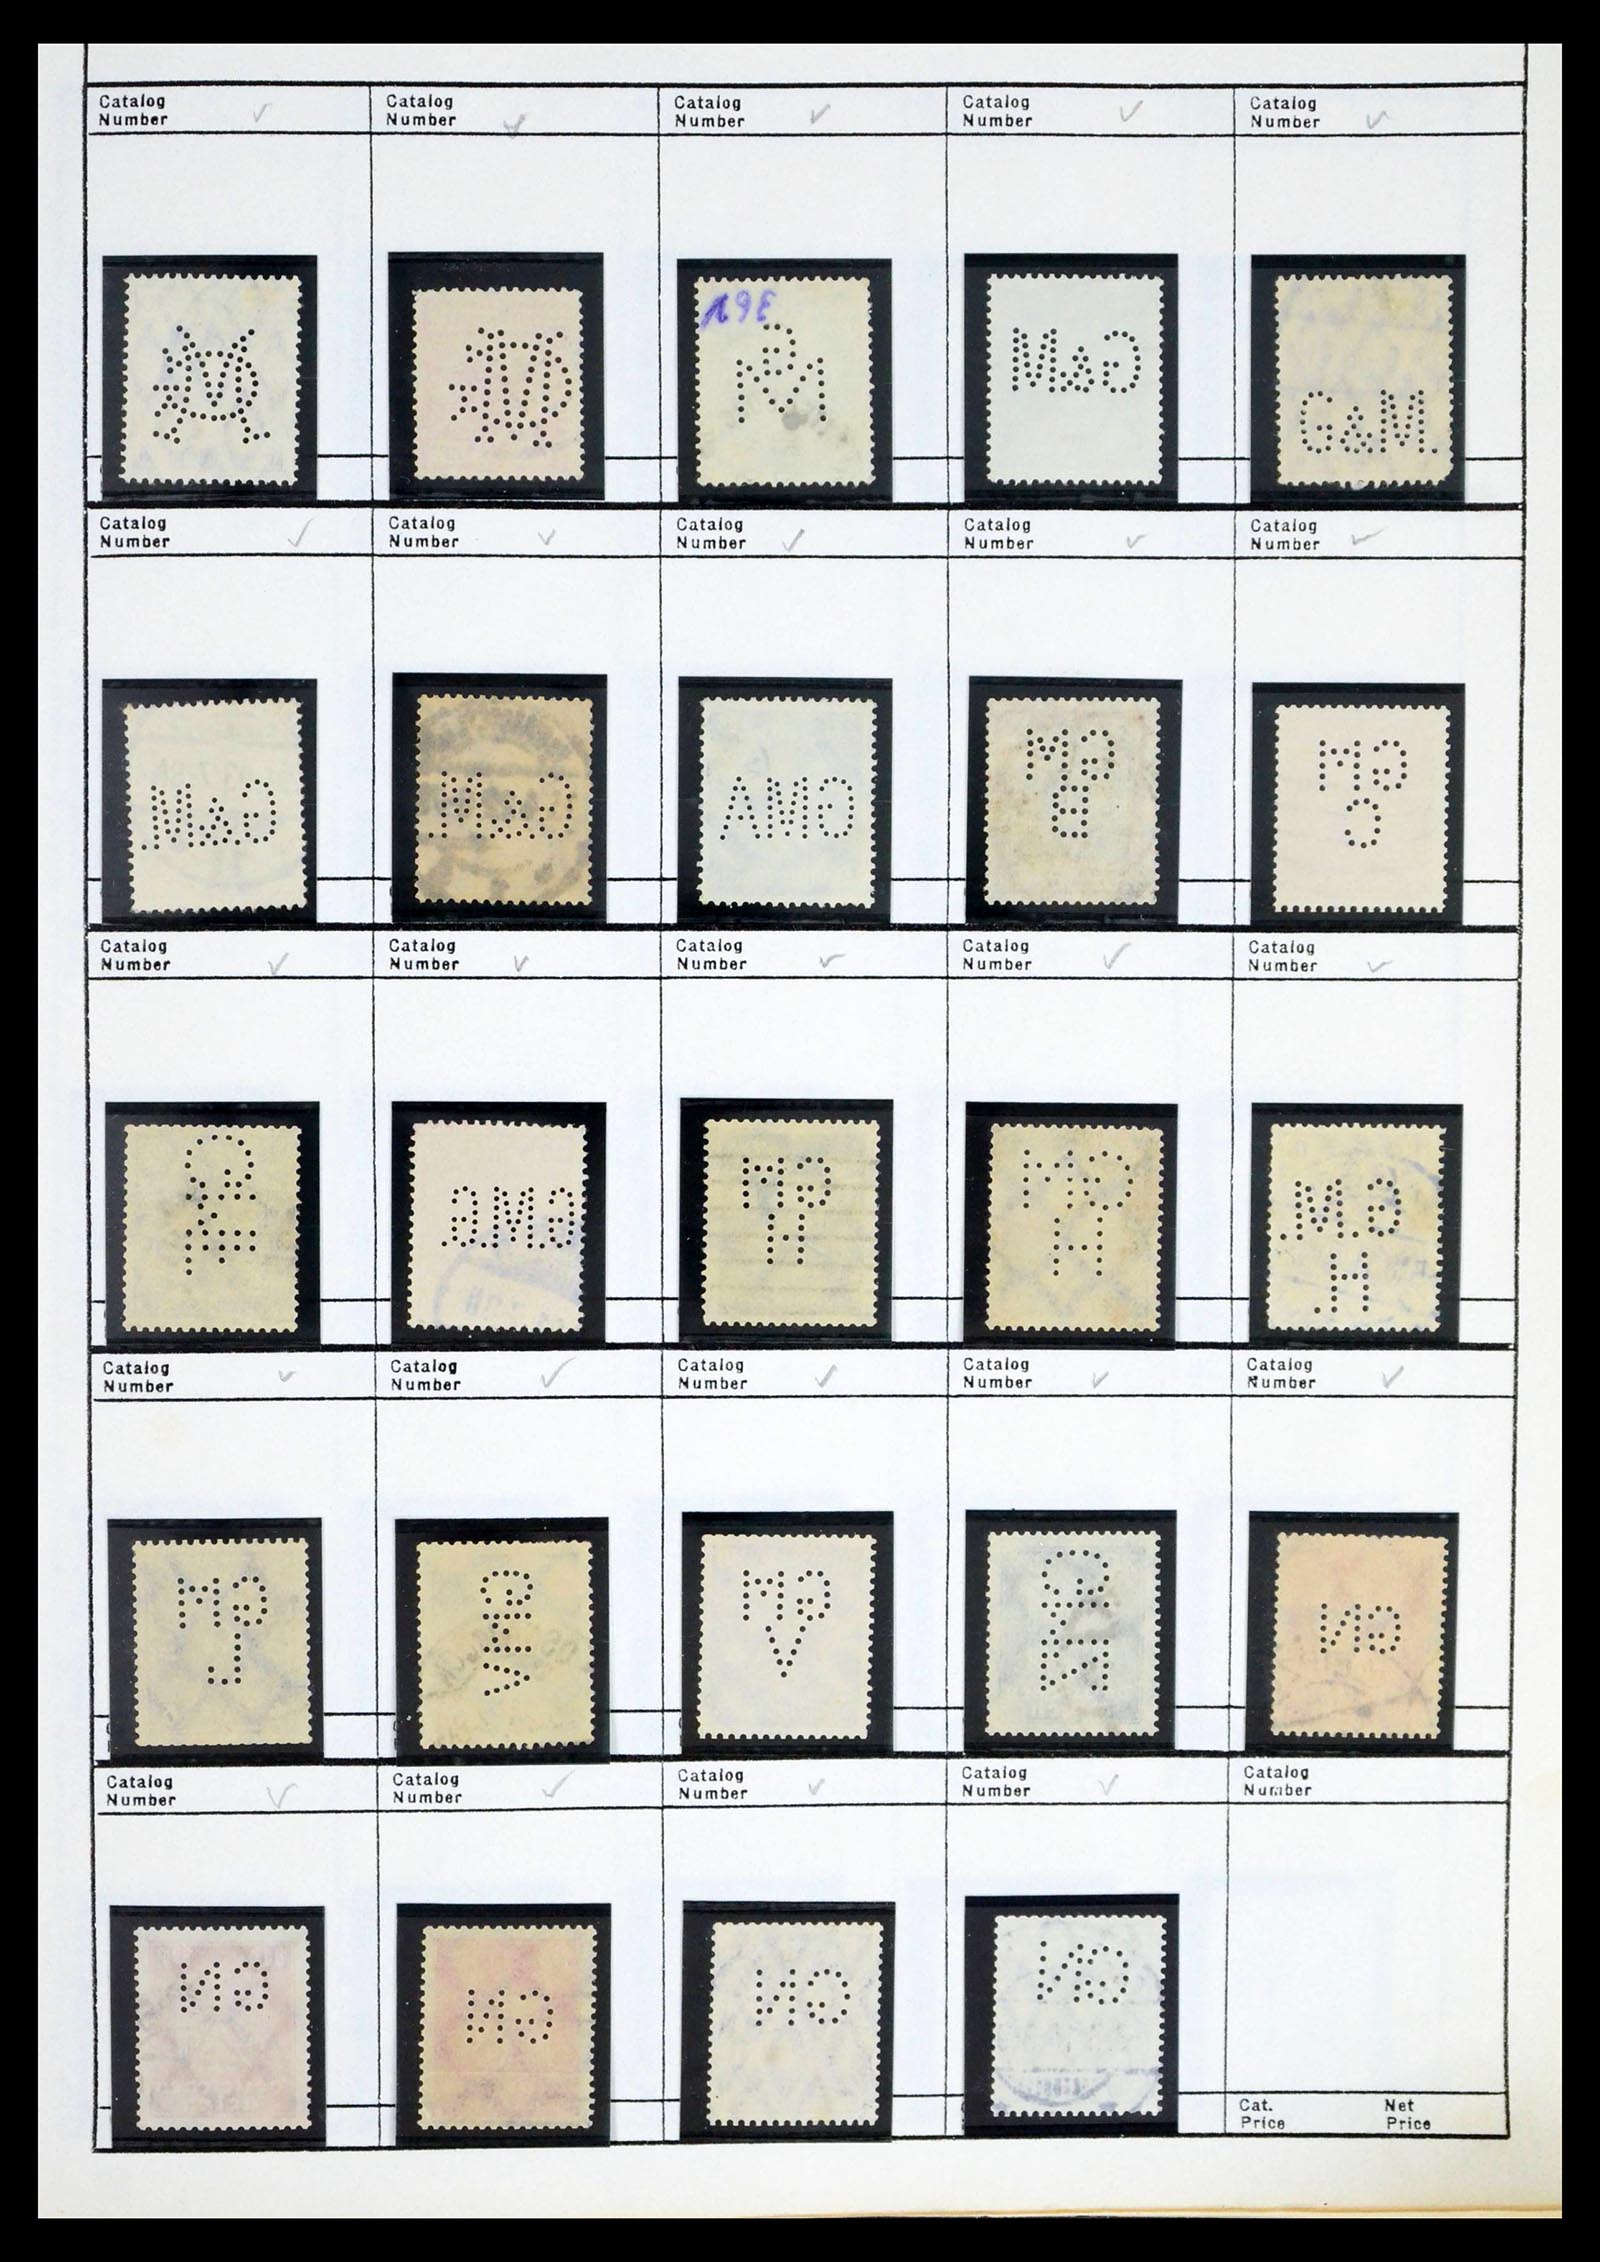 Catalog Number Catalog Number Catalog Number Catalog Number Catalog Number
19E
M&G
G&M.
Catalog Number Catalog Number Catalog Number Catalog Number Catalog Number
G&M.
G&M.
GMA
GM
B
GM
C
Catalog Number Catalog Number Catalog Number Catalog Number Catalog Number
G.M.G.
GM
H
GM
H
G.M.
H.
Catalog Number Catalog Number Catalog Number Catalog Number Catalog Number
GM
J
GM
V
GN
Catalog Number Catalog Number Catalog Number Catalog Number Catalog Number
GN
GN
GN
GN
Cat. Price Net Price